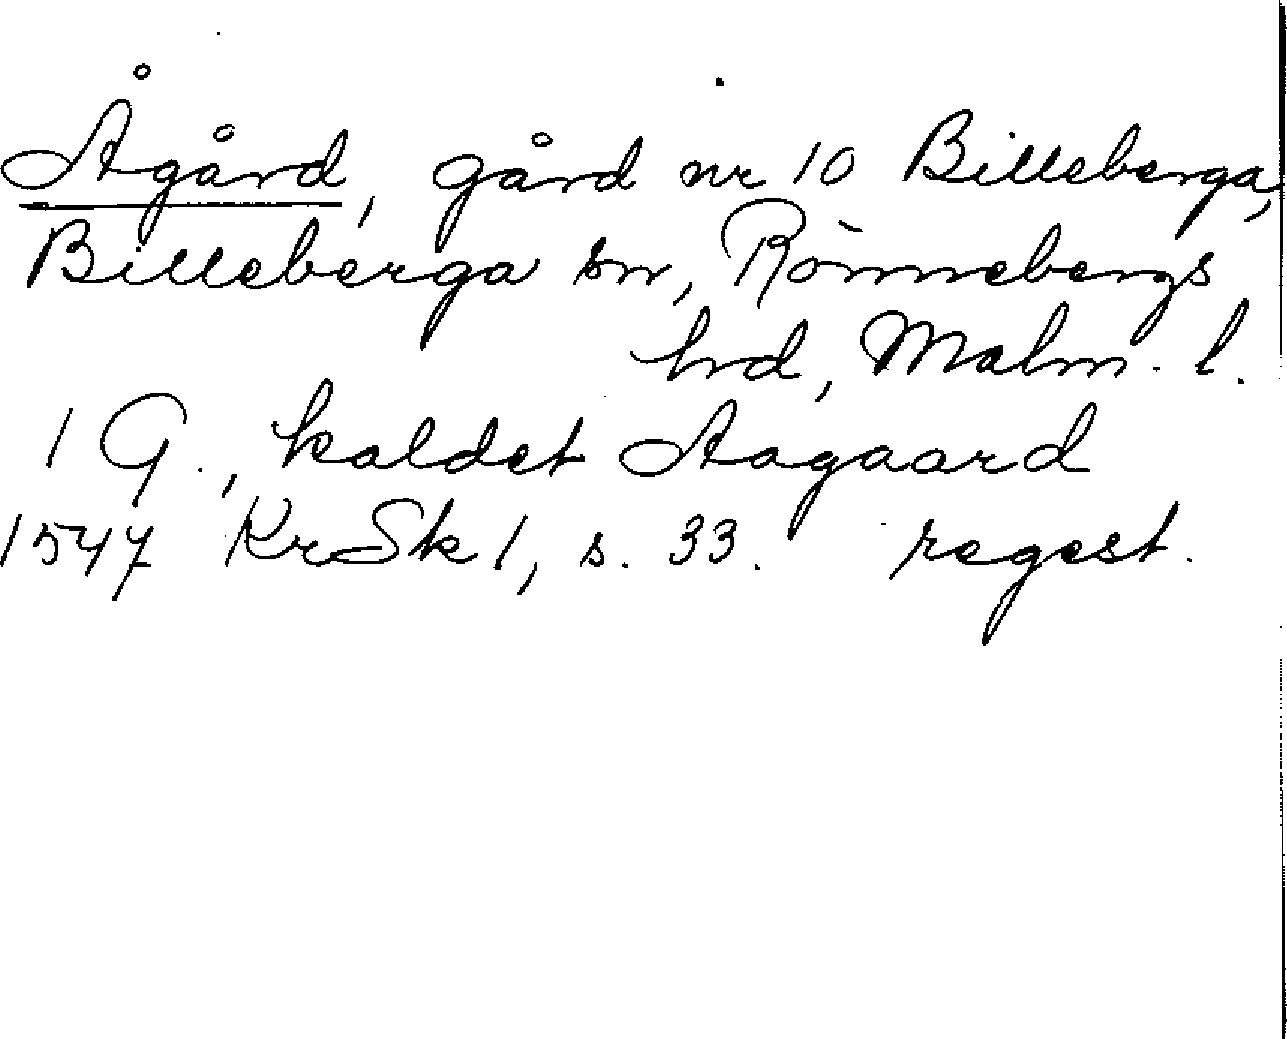 Ågård, gård nr 10 Billeberga,
Billeberga sn, Rönnebergs
hrd, Malm. l.
1 G., kaldet Aagaard
1547 KrSk 1, s. 33. regest.